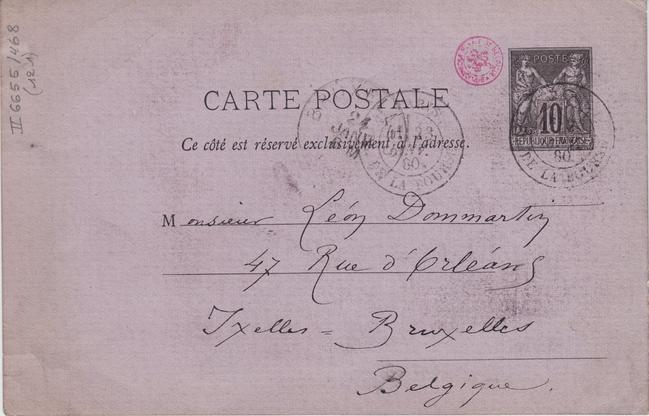 II 6655/468
(121)
POSTE
10
RÉPUBLIQUE FRANÇAISE
CARTE POSTALE
Ce côté est réservé exclusivement à l'adresse.
24
JANV
80
DE LA BOURSE
80
DE LA BOURSE
Monsieur Léon Dommartin
47 Rue d'Orléans
Ixelles = Bruxelles
Belgique.